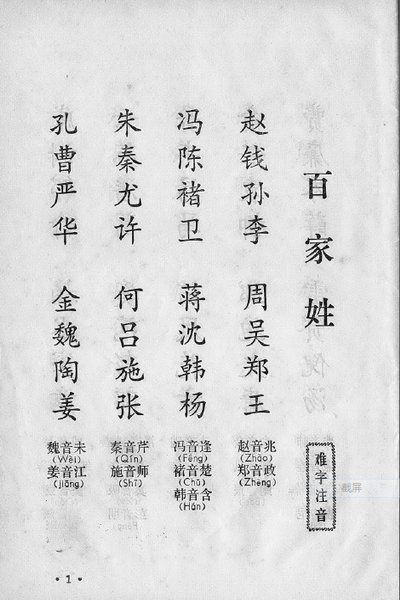 百家姓
难字注音
赵钱孙李 周吴郑王
赵音兆
(Zhào)
郑音政
(Zhèng)
冯陈褚卫 蒋沈韩杨
冯音逢
(Féng)
褚音楚
(Chǔ)
韩音含
(Hán)
朱秦尤许 何吕施张
秦音芹
(Qín)
施音师
(Shī)
孔曹严华 金魏陶姜
魏音未
(Wèi)
姜音江
(jiāng)
·1·
截屏